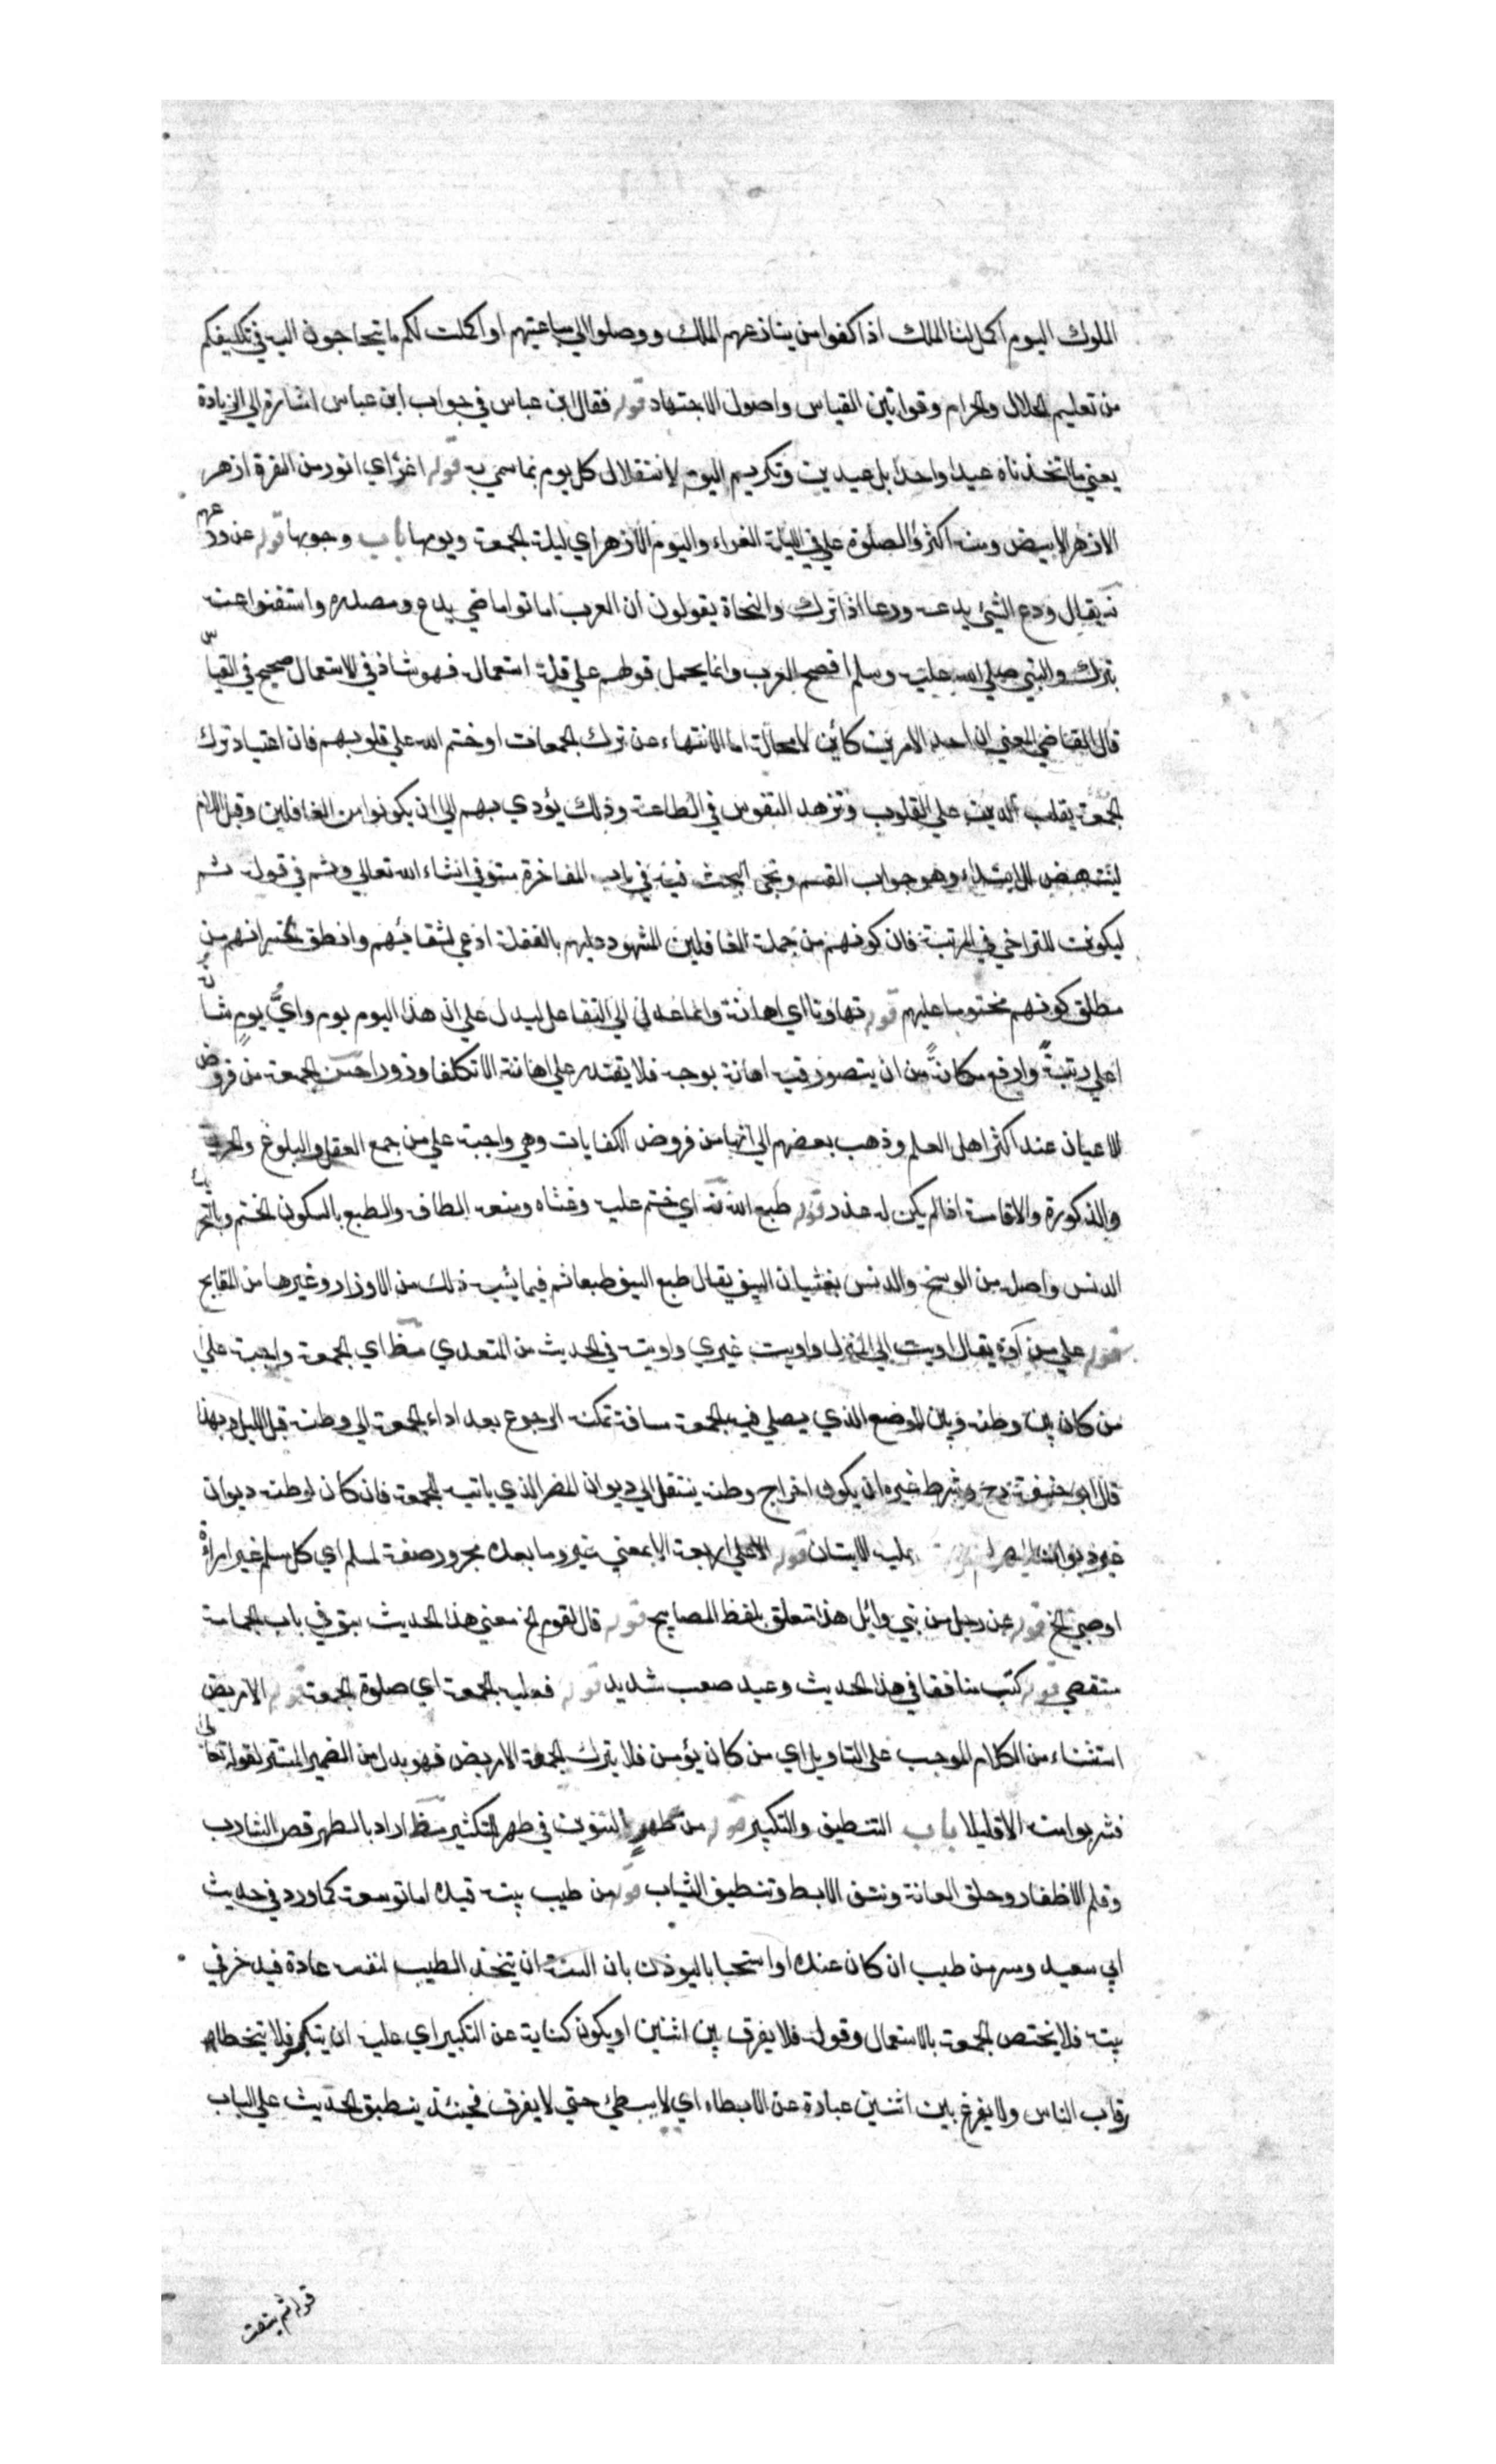 الملوك اليوم اكمل لنا الملك اذا كفوا من ينازعهم الملك ووصلوا الي مباغيهم او اكملت لكم ما تحتاجون اليه في تكليفكم
من تعليم الحلال والحرام وقوانين القياس واصول الاجتهاد قوله فقال ابن عباس في جواب ابن عباس اشارة الي الزيادة
يعني ما اتخذناه عيدا واحدا بل عيدين وتكريم اليوم لاستقلال كل يوم بما سمي به قوله اغر اي انور من الغرة ازهر
الازهر الابيض ومنه اكثروا الصلوة علي في الليلة الغراء واليوم الازهر اي ليلة الجمعة ويومها باب وجوبها قوله عن ودعهم
نه يقال ودع الشئ يدعه ودعا اذا تركه والنحاة يقولون ان العرب اماتوا ماضي يدع ومصدره واستغنوا عنه
بترك والنبي صلي الله عليه وسلم افصح العرب وانما يحمل قولهم علي قلة استعماله فهو شاذ في الاستعمال صحيح في القياس
قال القاضي المعني ان احد الامرين كائن لا محالة اما الانتهاء عن ترك الجمعات او ختم الله علي قلوبهم فان اعتياد ترك
الجمعة يغلب الدين علي القلوب وتزهد النفوس في الطاعة وذلك يؤدي بهم الي ان يكونوا من الغافلين وقيل اللام
لينتهين للابتداء وهو جواب القسم ويجئ البحث فيه في باب المفاخرة مستوفي انشاء الله تعالي وثم في قوله ثم
ليكونن للتراخي في المرتبة فان كونهم من جملة الغافلين المشهود عليهم بالغفلة ادعي لشقائهم وانطق لخسرانهم من
مطلق كونهم مختوما عليهم قوله تهاونا اي اهانة وانما عدل الي التفاعل ليدل علي ان هذا اليوم يوم واي يوم شانه
اعلي رتبة وارفع مكانة من ان يتصور فيه اهانة بوجه فلا يقتدر علي اهانته الا تكلفا وزورا حسن الجمعة من فروض
الاعيان عند اكثر اهل العلم وذهب بعضهم الي انها من فروض الكفايات وهي واجبة علي من جمع العقل والبلوغ والحرية
والذكورة والاقامة اذا لم يكن له عذر قوله طبع الله نه اي ختم عليه وغشاه ومنعه الطاف والطبع بالسكون الختم وبالتحريك
الدنس واصله من الوسخ والدنس يغشيان السيف يقال طبع السيف طبعا ثم فيما يشبه ذلك من الاوزار وغيرها من المقابح
قوله علي من آوه يقال اويت الي المنزل واويت غيري واويته في الحديث من المتعدي مظ اي الجمعة واجبة علي
من كان بين وطنه وبين الموضع الذي يصلي فيه الجمعة مسافة تمكنه الرجوع بعد اداء الجمعة الي وطنه قبل الليل وبهذا
قال ابو حنيفة رح وشرط غيره ان يكون اخراج وطنه ينتقل الي ديوان المصر الذي ياتيه للجمعة فان كان لوطنه ديوان
غير ديوان المصر لم يجب عليه الاتيان قوله الا علي اربعة الا بمعني غير وما بعده مجرور صفة لمسلم اي كل مسلم غير امراة
او صبي الخ قوله عن رجل من بني وائل هذا متعلق بلفظ المصابيح قوله قال لقوم الخ معني هذا الحديث سبق في باب الجماعة
مستقصي قوله كتب منافقا في هذا الحديث وعيد صعب شديد قوله فعليه الجمعة اي صلوة الجمعة قوله الا مريض
استثناء من الكلام الموجب علي التاويل اي من كان يؤمن فلا يترك الجمعة الا مريض فهو بدل من الضمير المستتر لقوله تعالي
فشربوا منه الا قليلا باب التنظيف والتكبير قوله من طهر التنوين في طهر للتكثير مظ اراد بالطهر قص الشارب
وقلم الاظفار وحلق العانة ونتف الابط وتنظيف الثياب قوله من طيب بيته قيده اما توسعة كما ورد في حديث
ابي سعيد ومس من طيب ان كان عنده او استحبابا ليوذن بان السنة ان يتخذ الطيب لنفسه عادة فيدخر في
بيته فلا يختص الجمعة بالاستعمال وقوله فلا يفرق بين اثنين او يكون كناية عن التكبير اي عليه ان يتكبر فلا يتخطا
رقاب الناس ولا يفرق بين اثنين عبارة عن الابطاء اي لا يبطئ حتي لا يفرق فحينئذ ينطبق الحديث علي الباب
قوله ثم ينصت